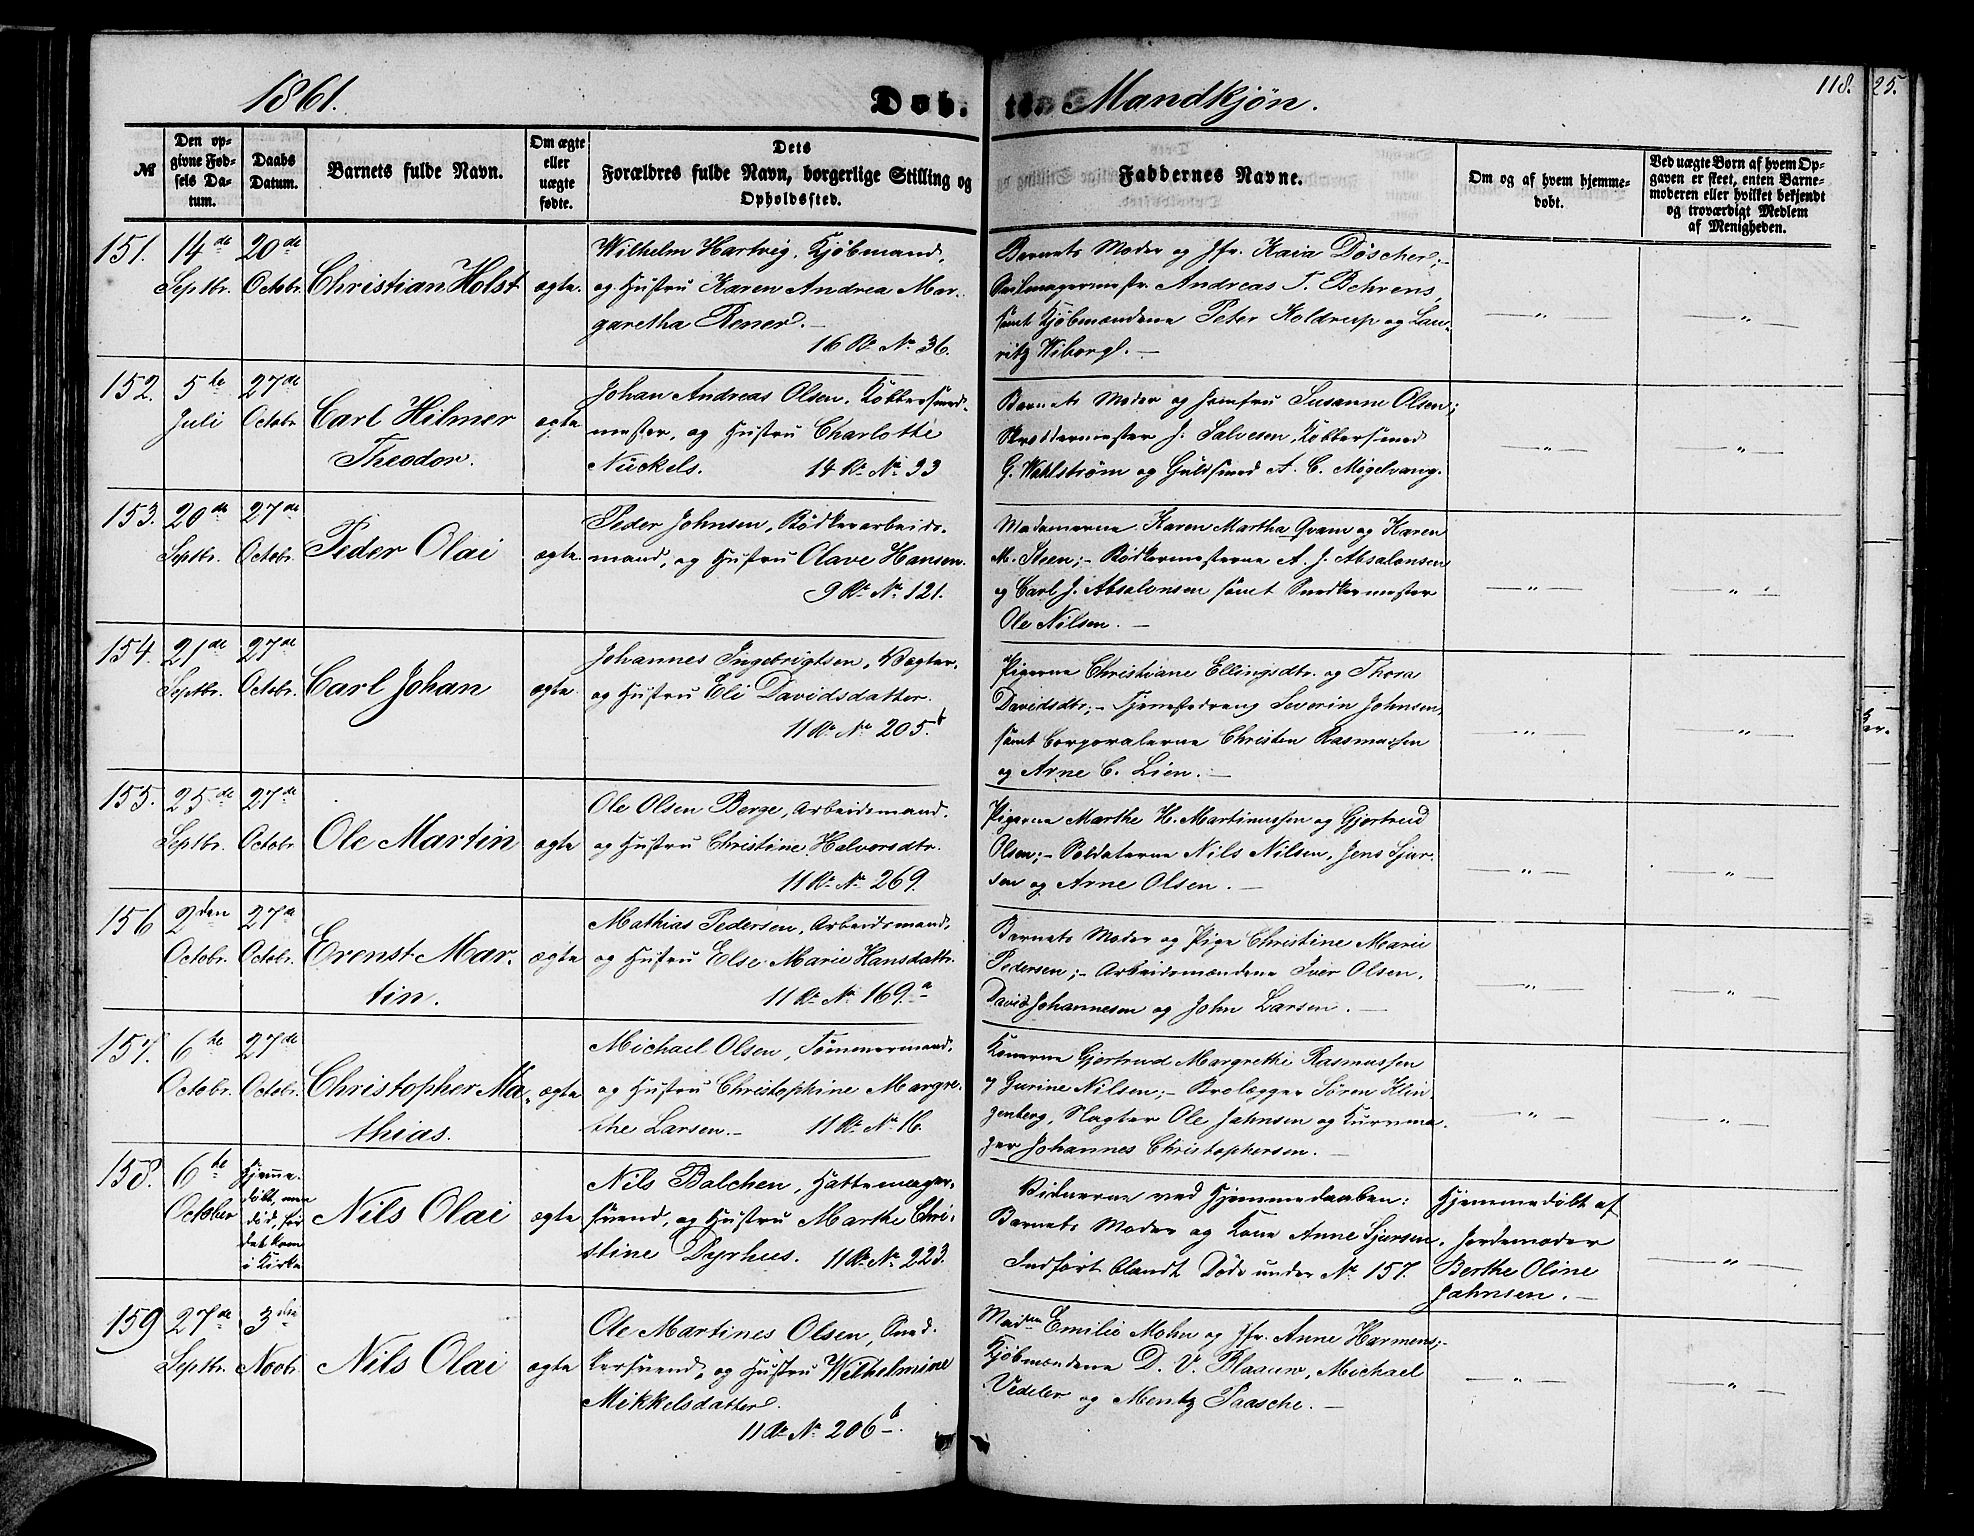 1861.
Døb.
te. Mandkjøn.
118.
25.
№
Den op-
givne Fød-
sels Da-
tum.
Daabs
Datum.
Barnets fulde Navn.
Om ægte
eller
uægte
fødte.
Dets
Forældres fulde Navn, borgerlige Stilling og
Opholdssted.
Faddernes Navne.
Om og af hvem hjemme-
døbt.
Ved uægte Børn af hvem Op-
gaven er skeet, enten Barne-
moderen eller hvilket bekjendt
og troværdigt Medlem
af Menigheden.
151. 14de Septbr. 20de Octobr. Christian Holst ægte.
Wilhelm Hartvig, Kjøbmand,
og Hustru Karen Andrea Mar-
garetha Rener. —
16 R. No 36.
Barnets Moder og Jfr. Kaia Döscher,-
Seilmagermestr. Andreas T. Behrens,
samt Kjøbmændene Peter Koldrup og Lau-
ritz Wiborg. —
— " —
— " —
152. 5te Juli 27de Octobr. Carl Hilmer
Theodor.
ægte
Johan Andreas Olsen, Kobbersmed-
mester, og Hustru Charlotte
Nückels. 14 R. No 33
Barnets Moder og Jomfru Susanne Olsen;
Skræddermester J. Salvesen, Kobbersmed
G. Wahlström og Guldsmed A. C. Møgelvang.
— " —
— " —
153. 20de Septbr. 27de Octobr. Peder Olai ægte.
Peder Johnsen, Bødkerarbeids-
mand, og Hustru Olave Hansen.
9 R. No 121.
Madamerne Karen Martha Qvam og Karen
M. Steen;- Bødkermesterne A. J. Absalonsen
og Carl J. Absalonsen samt Snedkermester
Ole Nilsen. —
— " —
— " —
154. 21de Septbr. 27de Octobr. Carl Johan ægte.
Johannes Ingebrigtsen, Vægter,
og Hustru Eli Davidsdatter.
11 R. No 205.b
Pigerne Christiane Ellingsdtr. og Thora
Davidsdtr;- Tjenestedreng Severin Johnsen,
samt Corporalerne Christen Rasmussen
og Arne C. Lien. —
— " —
— " —
155. 25de Septbr. 27de Octobr. Ole Martin ægte
Ole Olsen Berge, Arbeidsmand,
og Hustru Christine Halvorsdtr.
11 R. No 269.
Pigerne Marthe H. Martinussen og Gjertrud
Olsen;- Soldaterne Nils Nilsen, Jens Sjur-
sen og Arne Olsen. —
— " —
— " —
156 2den Octobr. 27de Octobr. Erenst Mar-
tin.
ægte
Mathias Pedersen, Arbeidsmand,
og Hustru Else Marie Hansdattr.
11 R. No 169.a
Barnets Moder og Pige Christine Marie
Pedersen;- Arbeidsmændene Iver Olsen,
David Johannesen og John Larsen. —
— " —
— " —
157. 6te Octobr. 27de Octobr. Christopher Ma-
thias.
ægte
Michael Olsen, Tømmermand,
og Hustru Christophine Margre-
the Larsen.- 11 R. No 16.
Konerne Gjertrud Margrethe Rasmussen
og Gurine Nilsen;- Brolægger Sören Klin-
genberg, Slagter Ole Jahnsen og Kurvma-
ger Johannes Christophersen. —
— " —
— " —
158. 6te October Hjemme-
døbt, men
död, før
det kom
i Kirke
Nils Olai ægte
Nils Balchen, Hattemager-
svend, og Hustru Marthe Chri-
stine Dyrhus. 11 R. No 223.
Vidnerne ved Hjemmedaaben:
Barnets Moder og Kone Anne Sjursen.
Indført blandt Døde under No 157.
Hjemmedøbt af
Jordemoder
Berthe Oline
Jahnsen. —
— " —
159 27de Septbr. 3die Novbr. Nils Olai ægte
Ole Martines Olsen, Sned-
kersvend, og Hustru Wilhelmine
Mikkelsdatter.
11 R. No 206b.
Madm Emilie Mohn og Jfr. Anne Harmens;-
Kjøbmændene D. V. Blaauw, Michael
Vedeler og Mentz Paasche. —
— " —
— " —